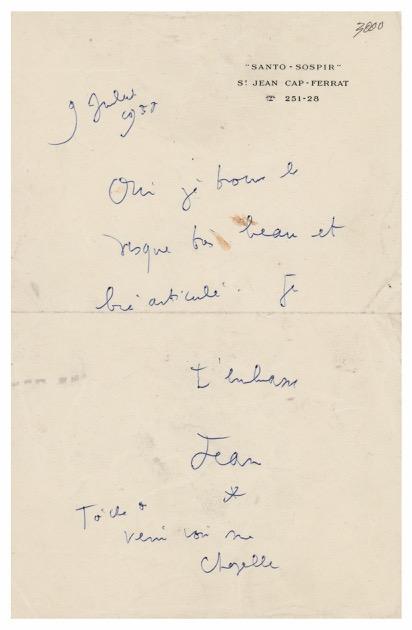 3800
"SANTO-SOSPIR"
St JEAN CAP-FERRAT
☎ 251-28
9 Juillet
1958
Oui je trouve le
risque très beau et
bien articulé. Je
t'embrasse
Jean
*
Tâche de
venir voir ma
Chapelle